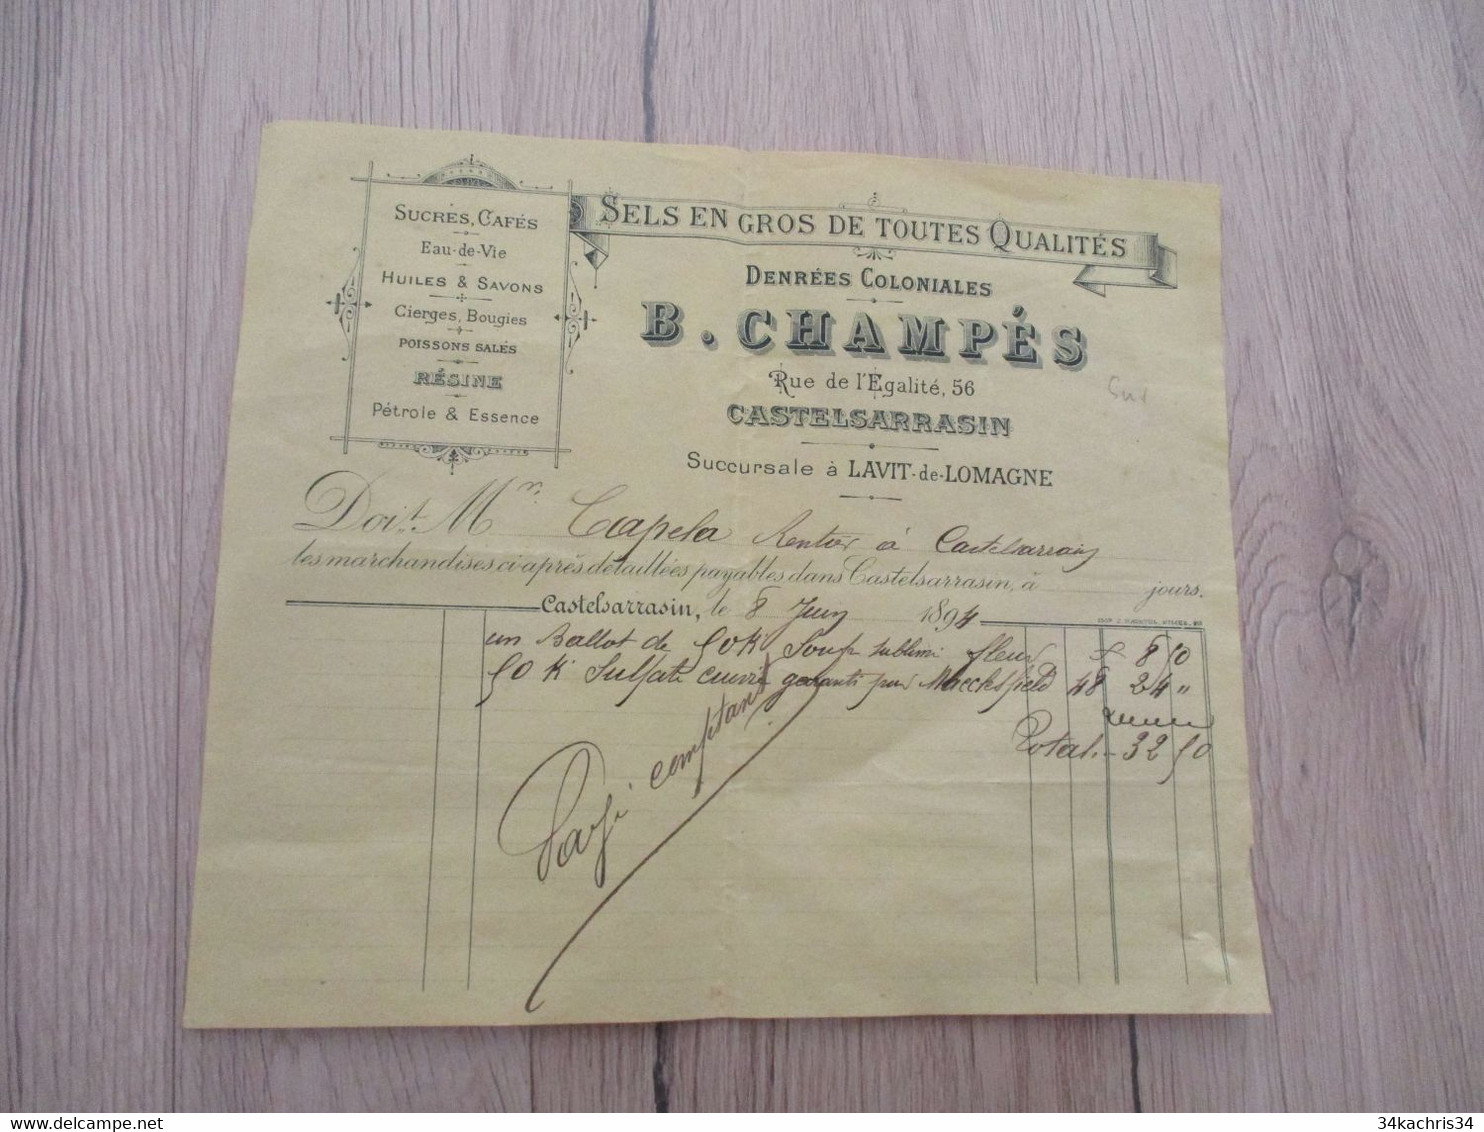 delcampe.net
SUCRES, CAFÉS
Eau-de-Vie
HUILES & SAVONS
Cierges, Bougies
POISSONS SALÉS
RÉSINE
Pétrole & Essence
SELS EN GROS DE TOUTES QUALITÉS
DENRÉES COLONIALES
B. CHAMPÉS
Rue de l'Egalité, 56
CASTELSARRASIN
Succursale à LAVIT-de-LOMAGNE
Doit Mr Capela Rentier à Castelsarrasin
les marchandises ci-après détaillées payables dans Castelsarrasin, à jours.
Castelsarrasin, le 8 Juin 1894
un Ballot de 50 K Souf sublimé fleur f 8 50
50 K Sulfate cuivre garanti pur Maecksfield 48 24 "
Total - 32 50
Payé comptant
34kachris34